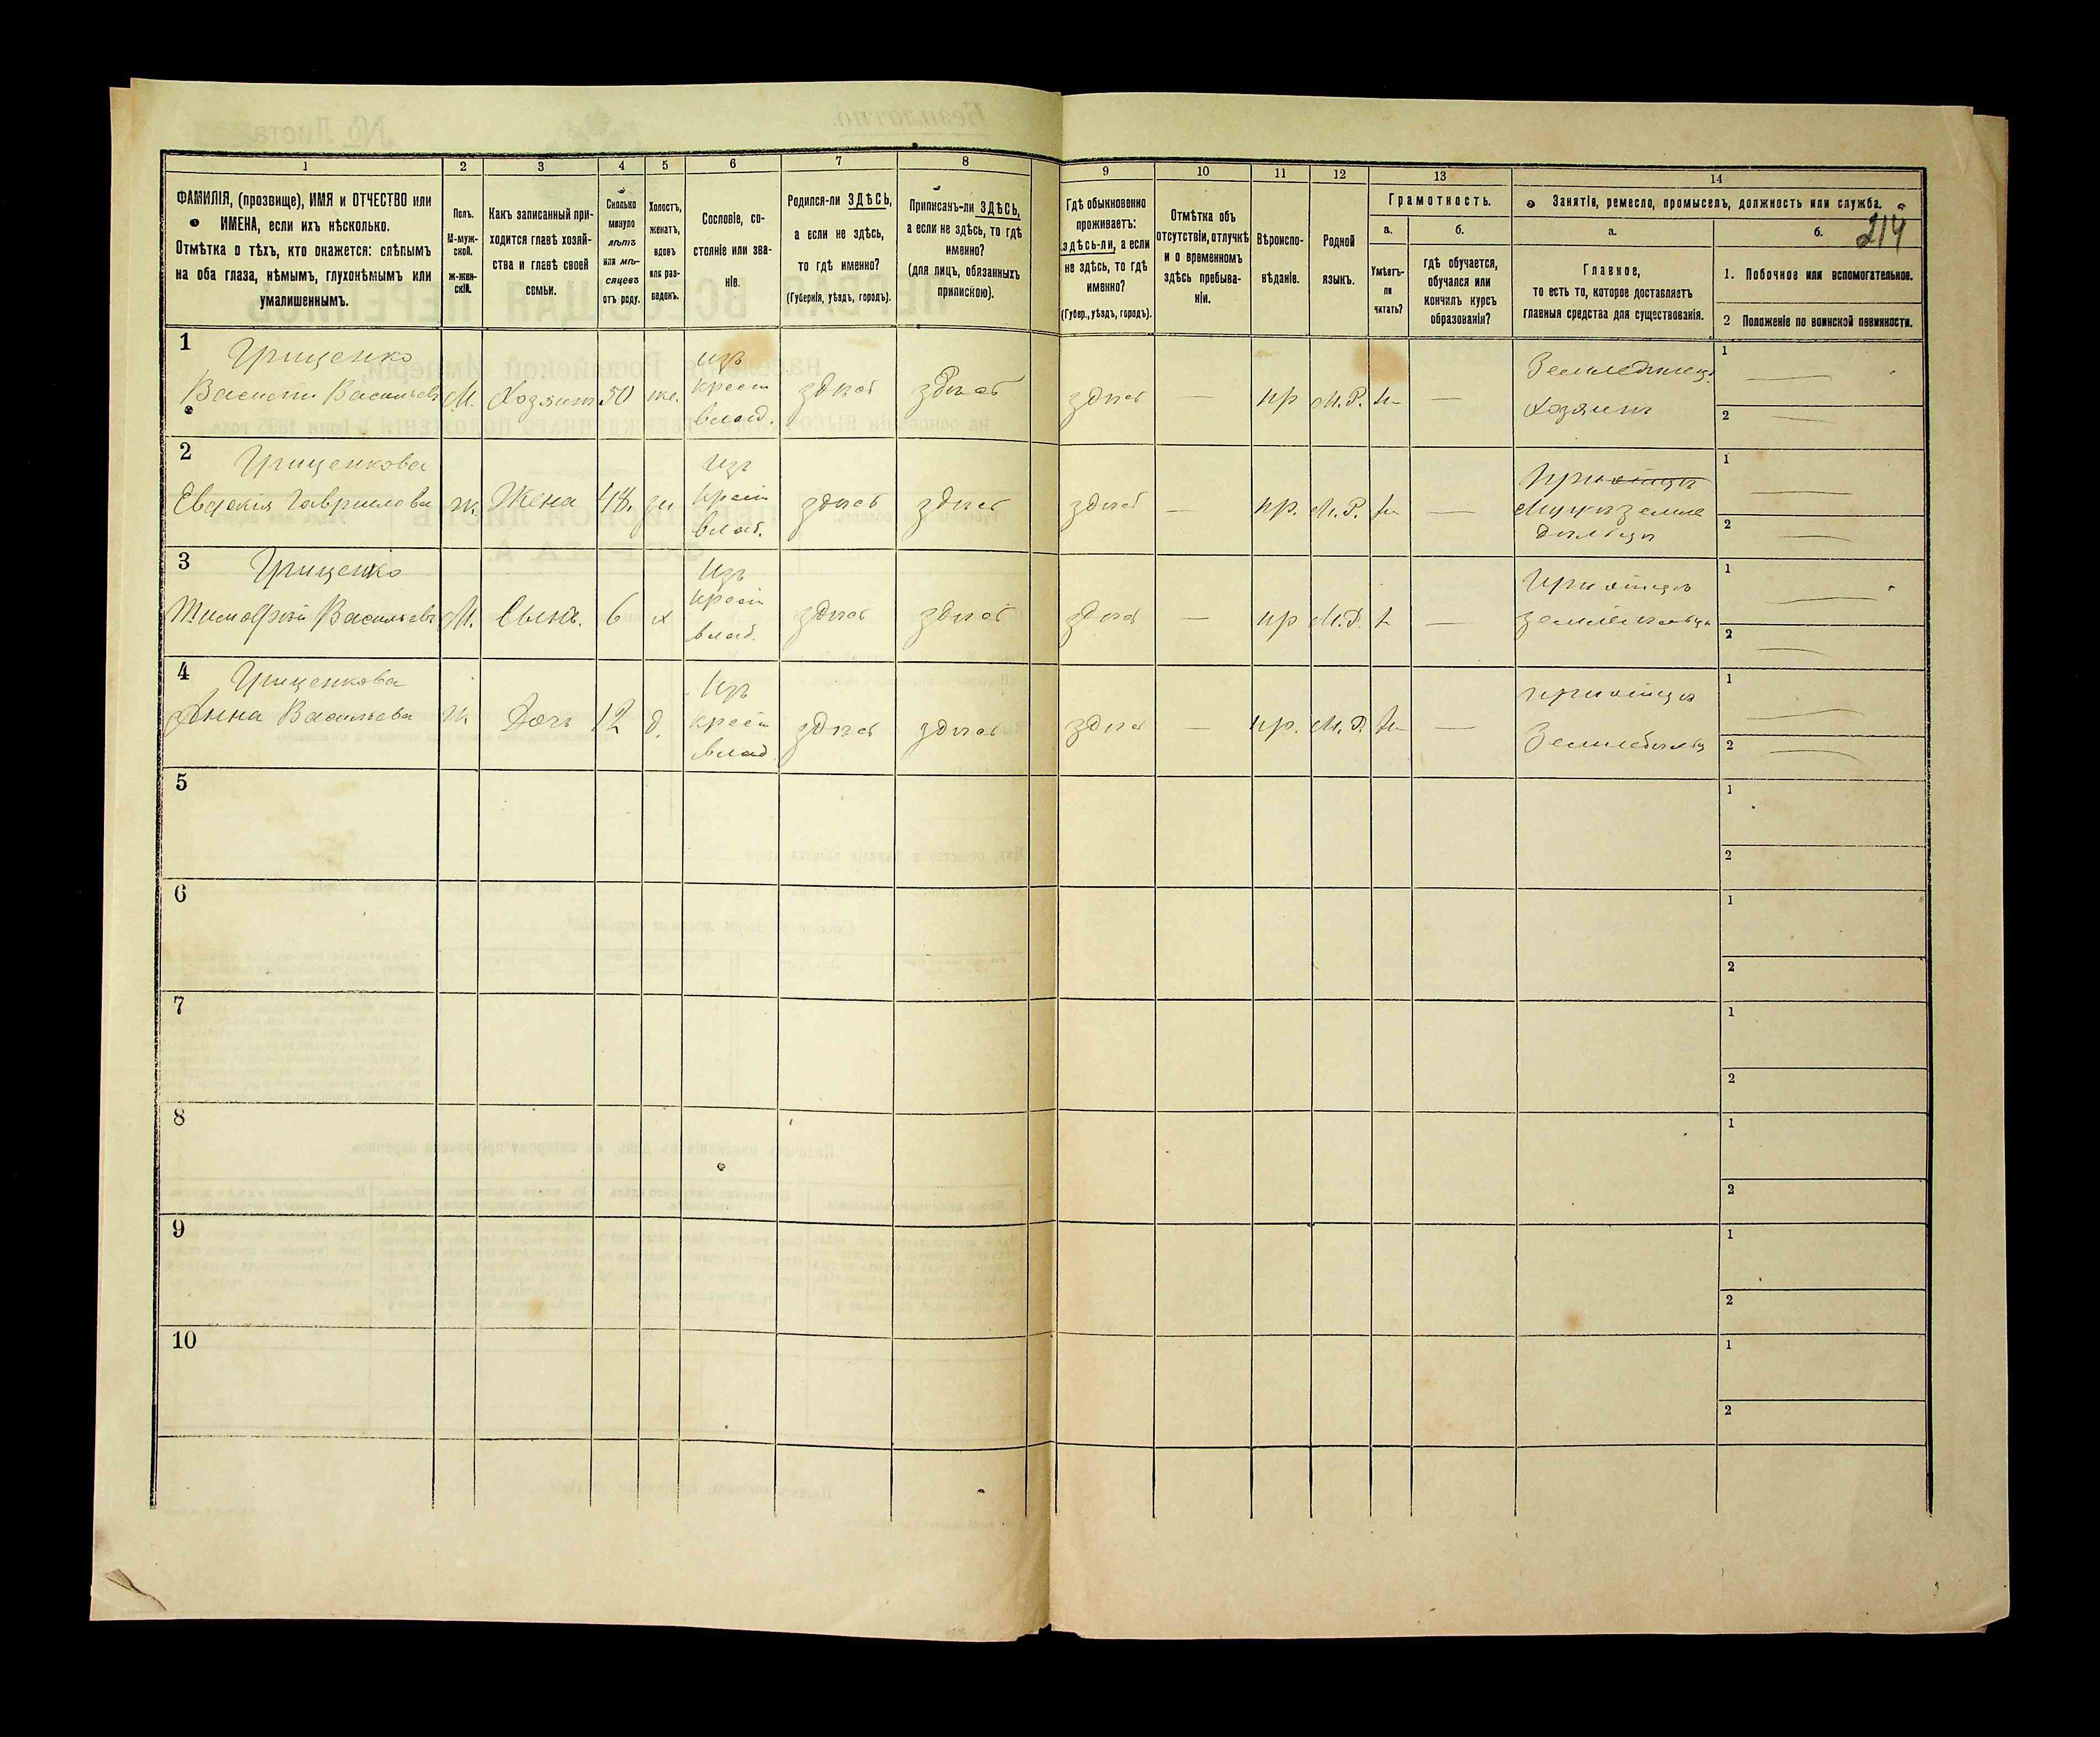 1 2 3 4 5 6 7 8 9 10 11 12 13 14
ФАМИЛІЯ, (прозвище), ИМЯ и ОТЧЕСТВО или
ИМЕНА, если ихъ нѣсколько.
Отмѣтка о тѣхъ, кто окажется: слѣпымъ
на оба глаза, нѣмымъ, глухонѣмымъ или
умалишеннымъ.
Полъ.
М-муж-
ской.
ж-жен-
скій.
Какъ записанный при-
ходится главѣ хозяй-
ства и главѣ своей
семьи.
Сколько
минуло
лѣтъ
или мѣ-
сяцевъ
отъ роду.
Холостъ,
женатъ,
вдовъ
или раз-
веденъ.
Сословіе, со-
стояніе или зва-
ніе.
Родился-ли ЗДѢСЬ,
а если не здѣсь,
то гдѣ именно?
(Губернія, уѣздъ, городъ).
Приписанъ-ли ЗДѢСЬ,
а если не здѣсь, то гдѣ
именно?
(для лицъ, обязанныхъ
припискою).
Гдѣ обыкновенно
проживаетъ:
здѣсь-ли, а если
не здѣсь, то гдѣ
именно?
(Губер., уѣздъ, городъ).
Отмѣтка объ
отсутствіи, отлучкѣ
и о временномъ
здѣсь пребыва-
ніи.
Вѣроиспо-
вѣданіе.
Родной
языкъ.
Грамотность.
а.
Умѣетъ-
ли
читать?
б.
гдѣ обучается,
обучался или
кончилъ курсъ
образованія?
Занятіе, ремесло, промыселъ, должность или служба.
214
а.
Главное,
то есть то, которое доставляетъ
главныя средства для существованія.
б.
1. Побочное или вспомогательное.
2 Положеніе по воинской повинности.
1 Грищенко изъ Земледѣлецъ 1 —
Василій Васильевъ М. Хозяинъ 50 же. крест здѣсь здѣсь здѣсь — пр М.Р. — Хозяинъ
влад. 2 —
2 Грищенкова Изъ 1 —
Евдокія Гаврилова ж. Жена 48 крест здѣсь здѣсь здѣсь — пр. М.Р. Мужъ земле
влад. дѣлецъ 2 —
3 Грищенко Изъ При отцѣ 1 —
Тимофей Васильевъ М. Сынъ. 6 х крест здѣсь здѣсь здѣсь — пр М.Р. —
влад. 2 —
4 Грищенкова Изъ при отцѣ 1 —
Анна Васильева ж Дочь 12 д. крест здѣсь здѣсь здѣсь — пр. М.Р. —
влад. 2 —
5 1
2
6 1
2
7 1
2
8 1
2
9 1
2
10 1
2